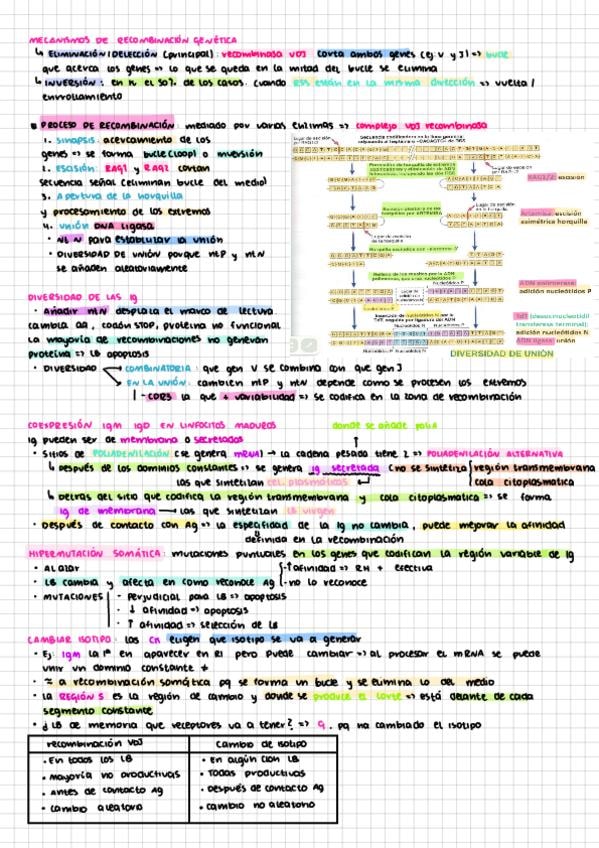 MECANISMOS DE RECOMBINACIÓN GENÉTICA
↳ ELIMINACIÓN/DELECCIÓN (principal): recombinasa VDJ corta ambos genes (ej: V y J) => bucle
que acerca los genes => lo que se queda en la mitad del bucle se elimina
↳ INVERSIÓN: en κ el 50% de los casos. Cuando RSS están en la misma dirección => vuelta /
enrrollamiento
PROCESO DE RECOMBINACIÓN: mediado por varias enzimas => complejo VDJ recombinasa
1. SINAPSIS: acercamiento de los
genes => se forma bucle (loop) o inversión
2. ESCISIÓN: RAG1 y RAG2 cortan
secuencia señal (eliminan bucle del medio)
3. Apertura de la horquilla
y procesamiento de los extremos
4. UNIÓN DNA ligasa
• Nt N para establecer la unión
• DIVERSIDAD DE UNIÓN porque ntP y ntN
se añaden aleatoriamente
RAG1/2: escisión
Artemisa: escisión
asimétrica horquilla
ADN polimerasa:
adición nucleótidos P
TdT (desoxinucleotidil
transferasa terminal):
adición nucleótidos N
ADN ligasa: unión
DIVERSIDAD DE UNIÓN
DIVERSIDAD DE LAS Ig
• Añadir ntN desplaza el marco de lectura.
cambia aa, codón STOP, proteína no funcional
La mayoría de recombinaciones no generan
proteína => LB apoptosis
• DIVERSIDAD → COMBINATORIA: que gen V se combina con que gen J
→ EN LA UNIÓN: cambien ntP y ntN depende como se procesen los extremos
- CDR3 la que + variabilidad => se codifica en la zona de recombinación
COEXPRESIÓN IgM IgD EN LINFOCITOS MADUROS
donde se añade poliA
Ig pueden ser de membrana o secretadas
• SITIOS de POLIADENILACIÓN (se genera mRNA) → la cadena pesada tiene 2 => POLIADENILACIÓN ALTERNATIVA
↳ Después de los dominios constantes => se genera Ig secretada (no se sintetiza región transmembrana
las que sintetizan cel. plasmáticas
cola citoplasmática
↳ Detrás del sitio que codifica la región transmembrana y cola citoplasmática => se forma
Ig de membrana → las que sintetizan LB virgen
• Después de contacto con Ag => la especifidad de la Ig no cambia, puede mejorar la afinidad
definida en la recombinación
HIPERMUTACIÓN SOMÁTICA: mutaciones puntuales en los genes que codifican la región variable de Ig
• Al azar
• LB cambia y afecta en como reconoce Ag
-↑ afinidad => RH + efectiva
-no lo reconoce
• MUTACIONES
- Perjudicial para LB => apoptosis
- ↓ afinidad => apoptosis
- ↑ afinidad => selección de LB
CAMBIAR ISOTIPO: los CH eligen que isotipo se va a generar
• Ej: IgM la 1ª en aparecer en RI pero puede cambiar => al procesar el mRNA se puede
unir un dominio constante ≠
• ≈ a recombinación somática pq se forma un bucle y se elimina lo del medio
• La REGIÓN S es la región de cambio y donde se produce el corte => está delante de cada
segmento constante
• ¿LB de memoria que receptores va a tener? => G, pq ha cambiado el isotipo
recombinación VDJ
Cambio de isotipo
• En todos los LB
• En algún clon LB
• Mayoría no productivas
• Todas productivas
• Antes de contacto Ag
• Después de contacto Ag
• Cambio aleatorio
• Cambio no aleatorio